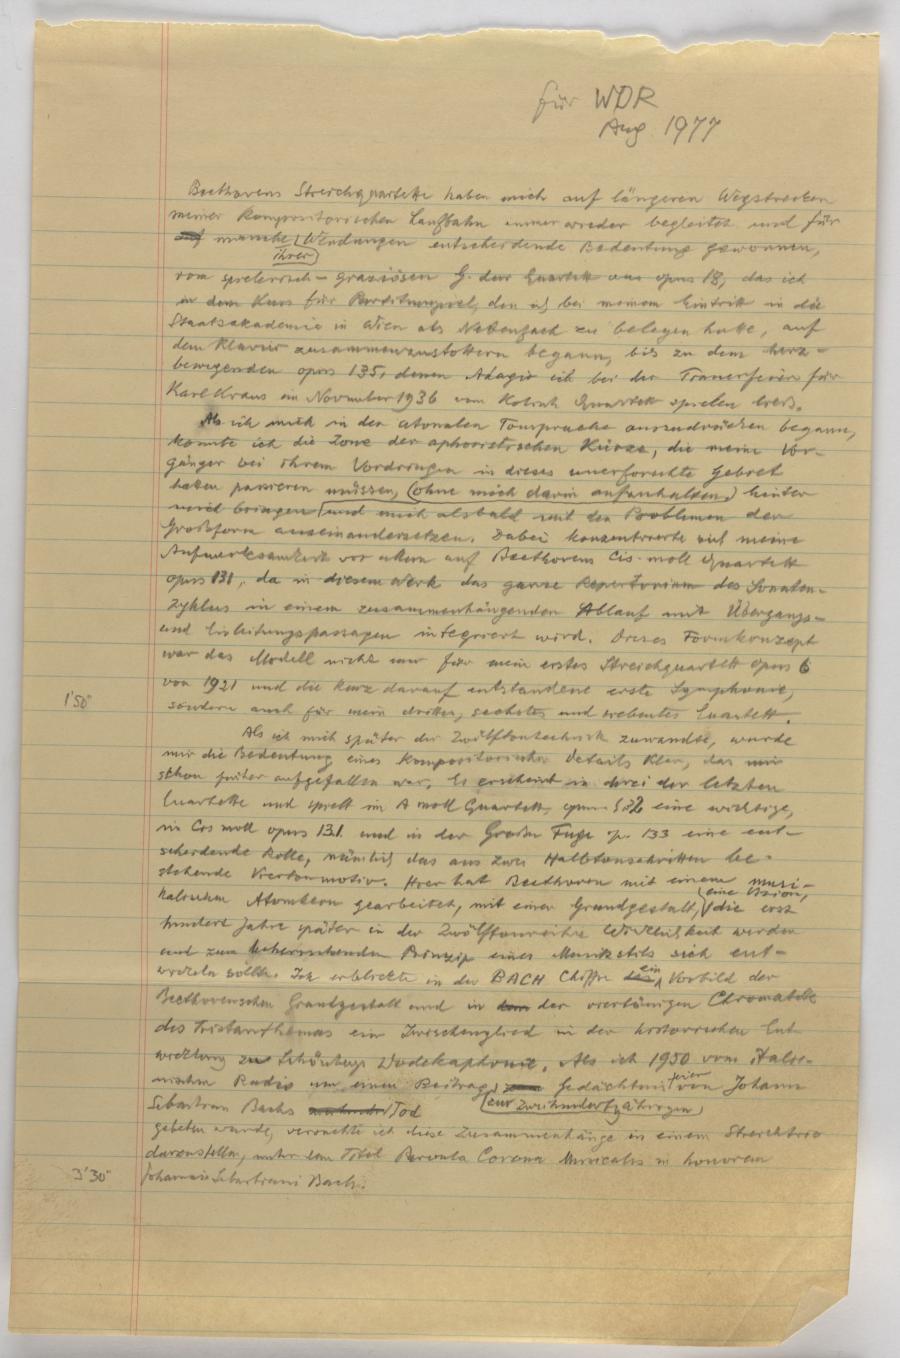 für WDR
Aug 1977
Beethovens Streichquartette haben mich auf längeren Wegstrecken
meiner kompositorischen Laufbahn immer wieder begleitet und für
manche ihrer Wendungen entscheidende Bedeutung gewonnen,
vom spielerisch-graziösen G-dur Quartett aus opus 18, das ich
in dem Kurs für Partiturspiel, den ich bei meinem Eintritt in die
Staatsakademie in Wien als Nebenfach zu belegen hatte, auf
dem Klavier zusammenzustottern begann, bis zu dem herz-
bewegenden opus 135, dessen Adagio ich bei der Trauerfeier für
Karl Kraus im November 1936 vom Kolisch Quartett spielen liess.
Als ich mich in der atonalen Tonsprache auszudrücken begann,
konnte ich die Zone der aphoristischen Kürze, die meine Vor-
gänger bei ihrem Vordringen in dieses unerforschte Gebiet
hatten passieren müssen, (ohne mich darin aufzuhalten) hinter
mich bringen und mich alsbald mit den Problemen der
Großform auseinandersetzen. Dabei konzentrierte sich meine
Aufmerksamkeit vor allem auf Beethovens Cis-moll Quartett
opus 131, da in diesem Werk das ganze Repertorium des Sonaten-
zyklus in einem zusammenhängenden Ablauf mit Übergangs-
und Einleitungspassagen integriert wird. Dieses Formkonzept
war das Modell nicht nur für mein erstes Streichquartett opus 6
von 1921 und die kurz darauf entstandene erste Symphonie,
1'50" sondern auch für mein drittes, sechstes und siebentes Quartett.
Als ich mich später der Zwölftontechnik zuwandte, wurde
mir die Bedeutung eines kompositorischen Details klar, das mir
schon früher aufgefallen war. Es erscheint in drei der letzten
Quartette und spielt im A moll Quartett, opus 132 eine wichtige,
in Cis moll opus 131 und in der Großen Fuge op. 133 eine ent-
scheidende Rolle, nämlich das aus zwei Halbtonschritten be-
stehende Viertonmotiv. Hier hat Beethoven mit einem musi-
kalischen Atomkern gearbeitet, mit einer Grundgestalt, eine Vision, die erst
hundert Jahre später in der Zwölftonreihe Wirklichkeit werden
und zum beherrschenden Prinzip eines Musikstils sich ent-
wickeln sollte. Ich erblickte in der BACH Chiffre ein Vorbild der
Beethovenschen Grundgestalt und in der viertönigen Chromatik
des Tristanthemas ein Zwischenglied in der historischen Ent
wicklung zu Schönbergs Dodekaphonie. Als ich 1950 vom Italie-
nischen Radio um einen Beitrag zur Gedächtnisfeier von Johann
Sebastian Bachs zweihundertjährigen Tod
gebeten wurde, versuchte ich diese Zusammenhänge in einem Streichtrio
darzustellen, unter dem Titel Parvula Corona Musicalis in honorem
3'30" Johannis Sebastiani Bach.